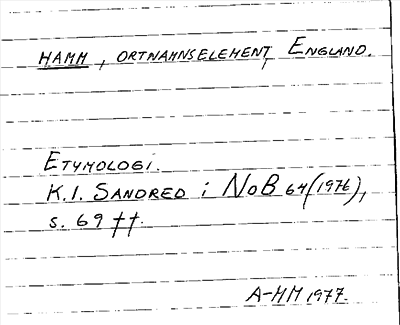 HAMM, ORTNAMNSELEMENT, ENGLAND.
ETYMOLOGI.
K.I. SANDRED i NoB 64 (1976),
s. 69 ff.
A-MM 1977.